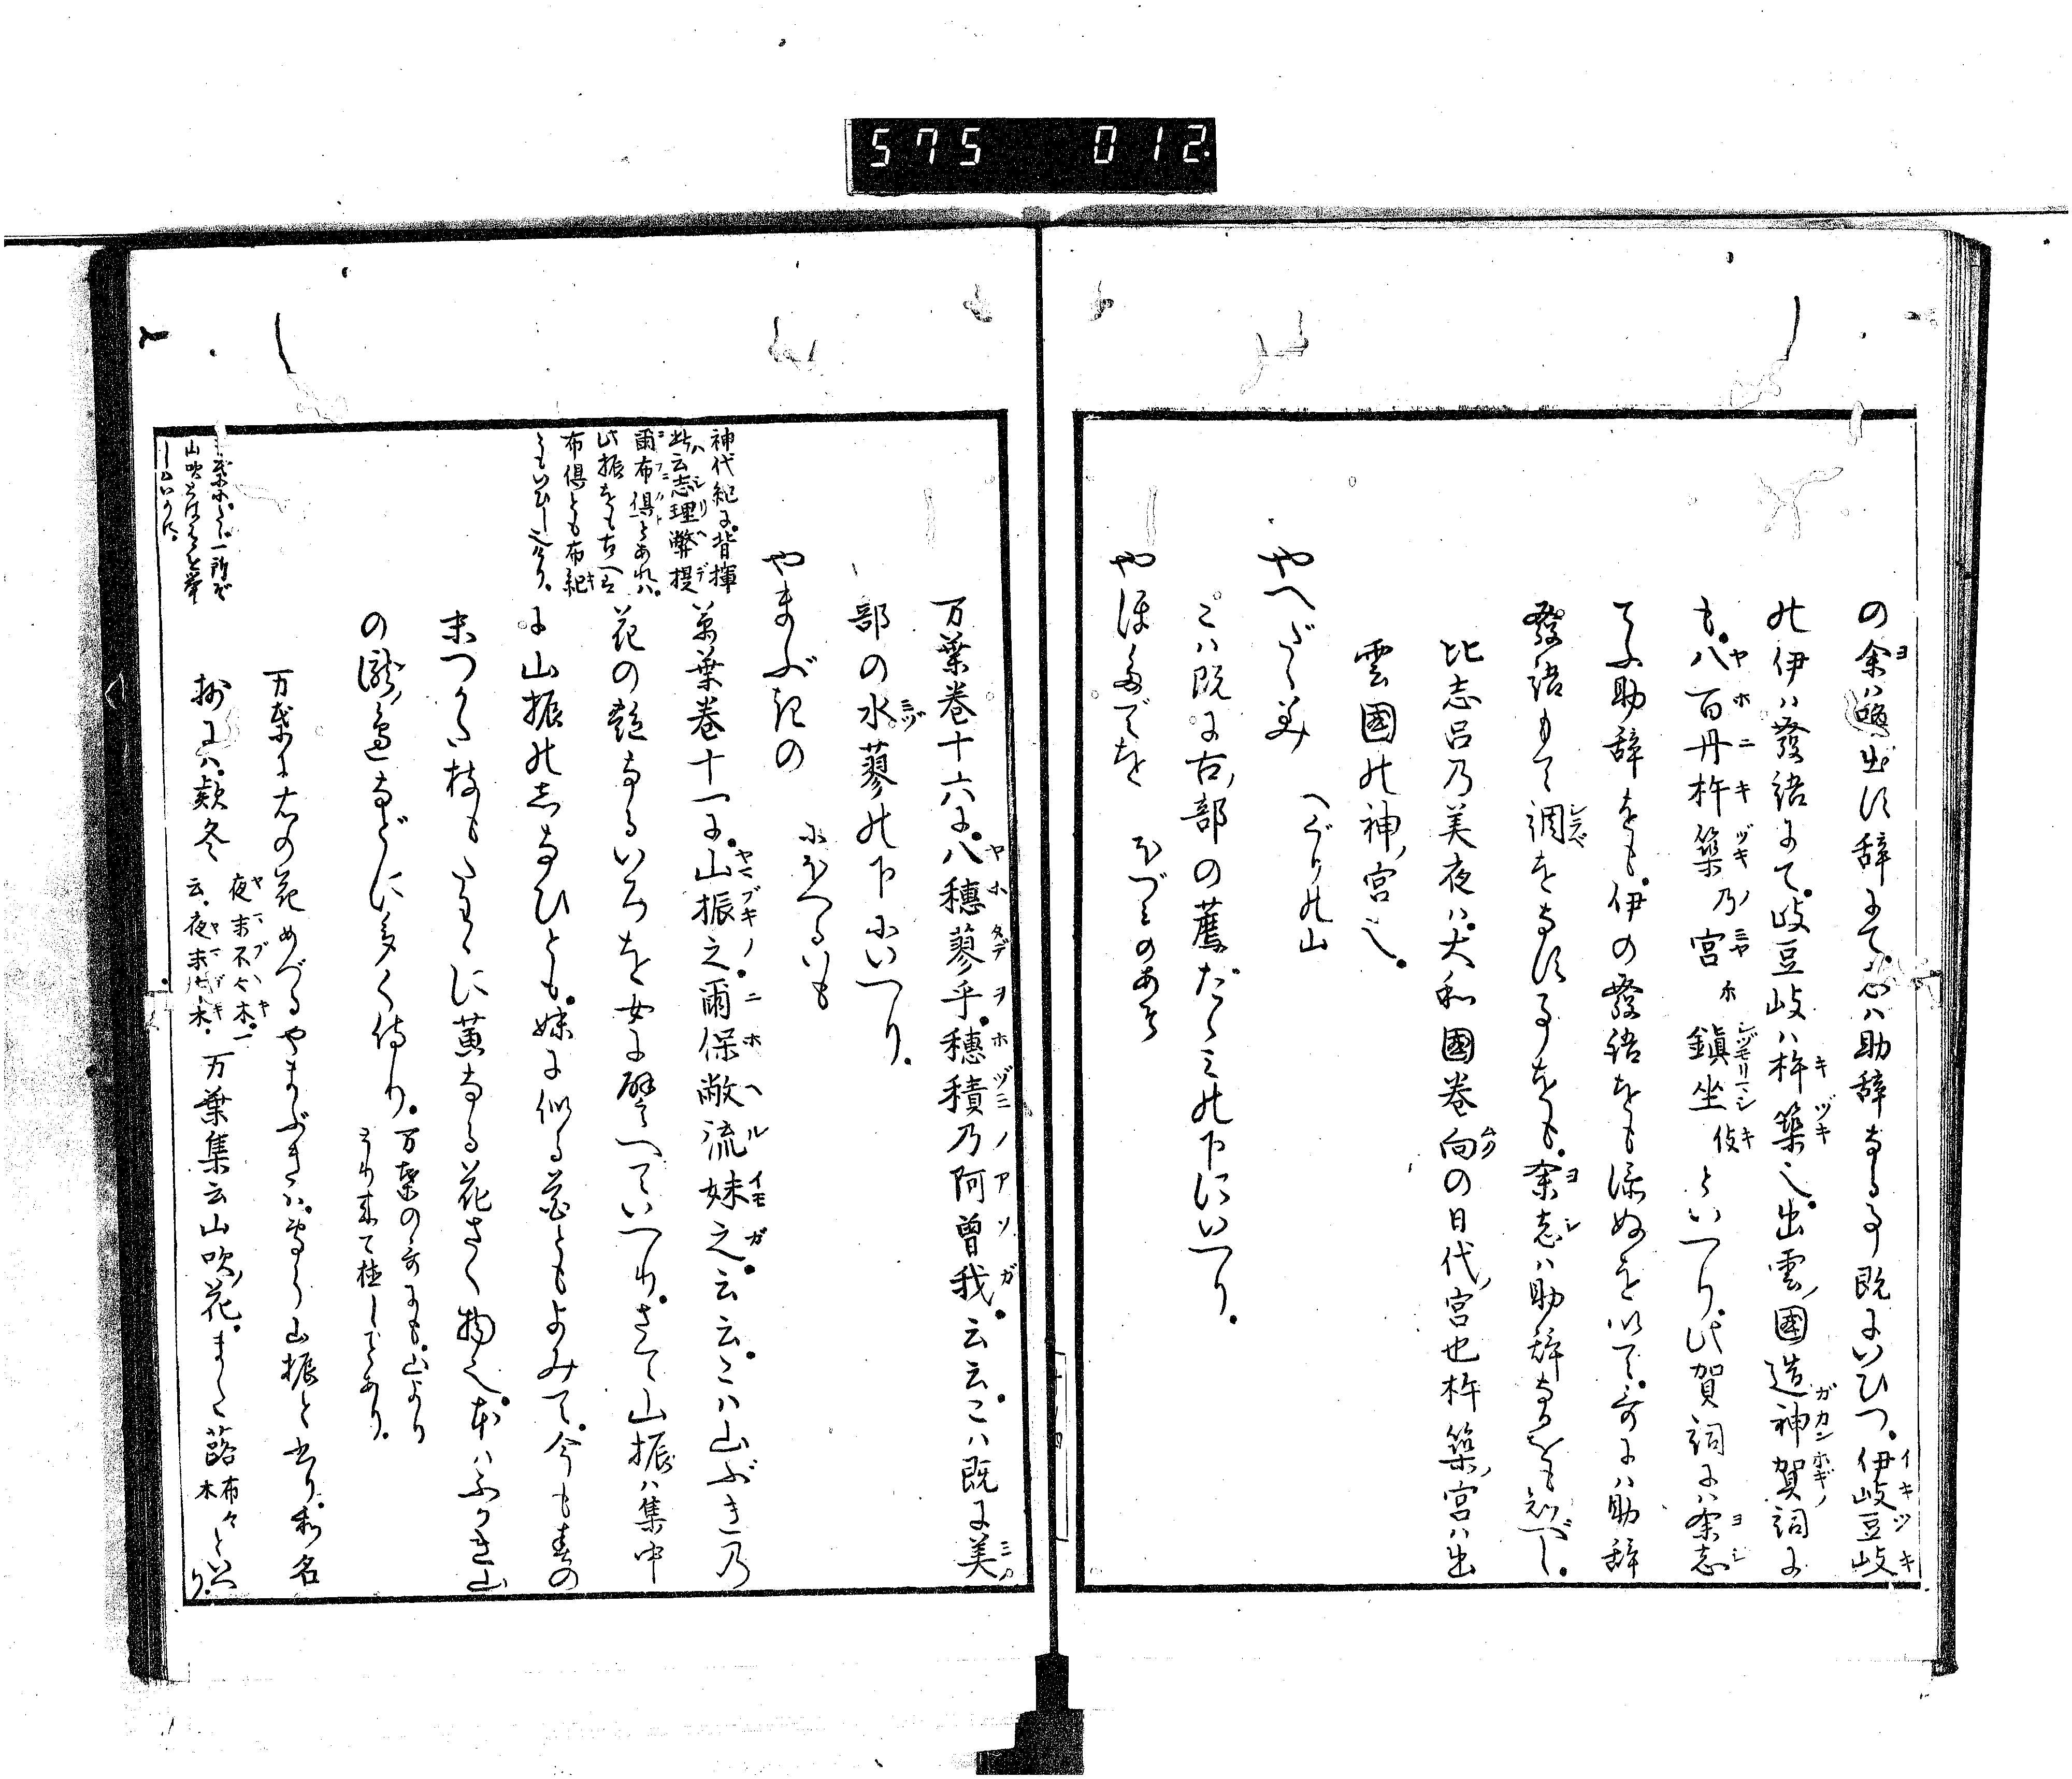 575 012
の余ハ喚出す辞にて志ハ助辞なる事既にいひつ。伊岐豆岐
の伊ハ發語にて。岐豆岐ハ杵築也。出雲ノ國造神賀詞に
も。八百丹杵築乃宮尓鎮坐伎といへり。此賀詞には余志
てふ助辞をも。伊の發語をも添ぬを以て。哥には助辞
發語もて調をなす事をも。余志ハ助辞なるをも知べし。
比志呂乃美夜ハ。大和國巻向の日代ノ宮也杵築ノ宮ハ出
雲國の神ノ宮也。
やへだゝみ へぐりの山
こハ既に古ノ部の薦だゝみの下にいへり。
やほたでを ほづみのあそ
万葉巻十六に。八穂蓼乎。穂積乃阿曽我。云云。こハ既に美ノ
部の水蓼の下にいへり。
やまぶきの にほへるいも
萬葉巻十一に。山振之。爾保敝流妹之。云云。こハ山ぶき乃
花の艶なるいろを女に譬へていへり。さて山振ハ集中
に山振のしなひとも。妹に似る花ともよみて。今も春の
末つかた枝もたわゝに黄なる花さく物也。本ハふかき山
の瀧ノ邊などに多く侍り。
万葉の哥にも。山より
とり来て植しとあり。
万葉に右の花めづるやまぶきハ。皆山振と書り。和名
抄には。款冬
夜末不々木。一
云。夜末布木。
万葉集云山吹ノ花。また蕗
布々木
といへり。
神代紀に。背揮
此云志理幣提
爾布倶とあれハ。
此振をも古へハ
布倶とも布紀
ともいひしなり。
山吹とは